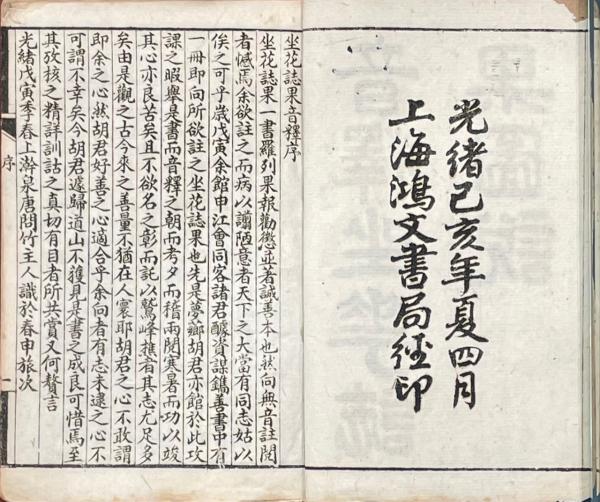 光緒己亥年夏四月
上海鴻文書局經印
坐花誌果音釋序
坐花誌果一書羅列果報勸懲並著誠善本也然向無音註閱
者憾焉余欲註之而病以謭陋意者天下之大當有同志姑以
俟之可乎歲戊寅余館申江會同客諸君醵資謀鐫善書中有
一冊即向所欲註之坐花誌果也先是夢薌胡君亦館於此攻
課之暇舉是書而音釋之朝而考夕而稽兩閱寒暑而功以竣
其心亦良苦矣且不欲名之彰而託以鷲峰樵者其志尤足多
矣由是觀之古今來之善量不猶在人寰耶胡君之心不敢謂
即余之心然胡君好善之心適合乎余向者有志未逮之心不
可謂不幸矣今胡君遽歸道山不獲見是書之成良可惜焉至
其攷核之精詳訓詁之真切有目者所共賞又何贅言
光緒戊寅季春上澣泉唐問竹主人識於春申旅次
序
一